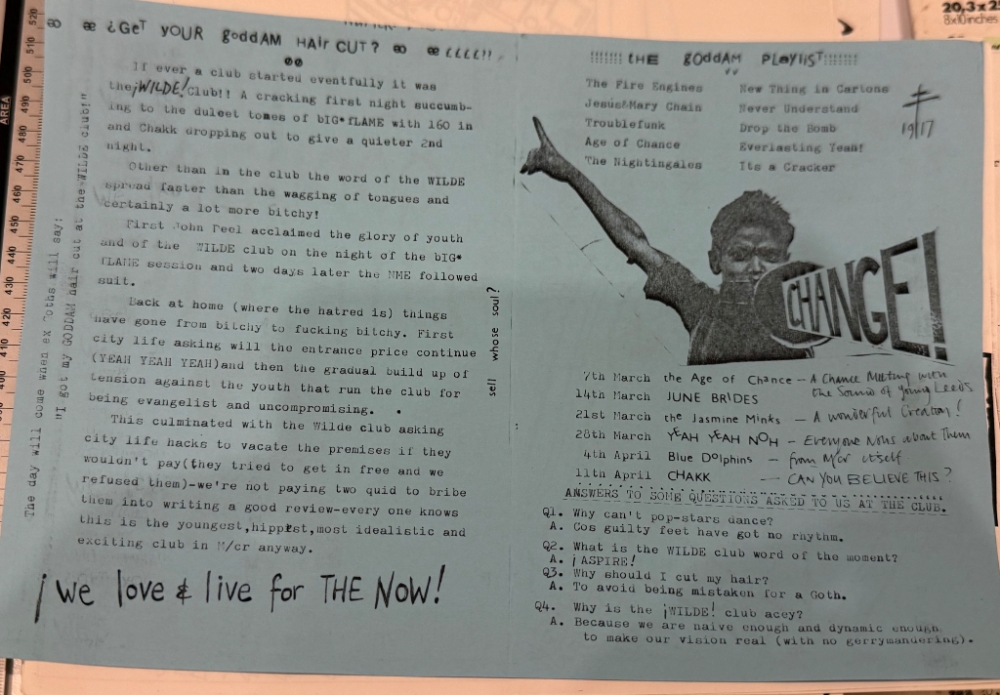 ¿GeT YOUR goddAM HAir CUT? ¿¿¿¿!!
If ever a club started eventfully it was
the¡WILDE!Club!! A cracking first night succumb-
ing to the dulcet tomes of bIG*fLAME with 160 in
and Chakk dropping out to give a quieter 2nd
night.
Other than in the club the word of the WILDE
spread faster than the wagging of tongues and
certainly a lot more bitchy!
First John Peel acclaimed the glory of youth
and of the WILDE club on the night of the bIG*
fLAME session and two days later the NME followed
suit.
Back at home (where the hatred is) things
have gone from bitchy to fucking bitchy. First
city life asking will the entrance price continue
(YEAH YEAH YEAH)and then the gradual build up of
tension against the youth that run the club for
being evangelist and uncompromising.
This culminated with the Wilde club asking
city life hacks to vacate the premises if they
wouldn't pay(they tried to get in free and we
refused them)-we're not paying two quid to bribe
them into writing a good review-every one knows
this is the youngest,hippest,most idealistic and
exciting club in M/cr anyway.
¡we love & live for THE NOW!
The day will come when ex Goths will say:
"I got my GODDAM hair cut at the WILDE club!"
sell whose soul?
!!!!!!! tHE goddAM PLaylisT!!!!!!!
The Fire Engines New Thing in Cartons
Jesus&Mary Chain Never Understand
Troublefunk Drop the Bomb
Age of Chance Everlasting Yeah!
The Nightingales Its a Cracker
19/17
CHANGE!
7th March the Age of Chance – A Chance Meeting with
the Sounds of Young Leeds
14th March JUNE BRIDES
21st March the Jasmine Minks – A wonderful Creation!
28th March YEAH YEAH NOH – Everyone Nohs about Them
4th April Blue Dolphins – from M/cr itself
11th April CHAKK – CAN YOU BELIEVE THIS?
ANSWERS TO SOME QUESTIONS ASKED TO US AT THE CLUB.
Q1. Why can't pop-stars dance?
A. Cos guilty feet have got no rhythm.
Q2. What is the WILDE club word of the moment?
A. ¡ASPIRE!
Q3. Why should I cut my hair?
A. To avoid being mistaken for a Goth.
Q4. Why is the ¡WILDE! club acey?
A. Because we are naive enough and dynamic enough
to make our vision real (with no gerrymandering).
20,3x2
8x10inches
AREA
520
510
500
490
480
470
460
450
440
430
420
410
400